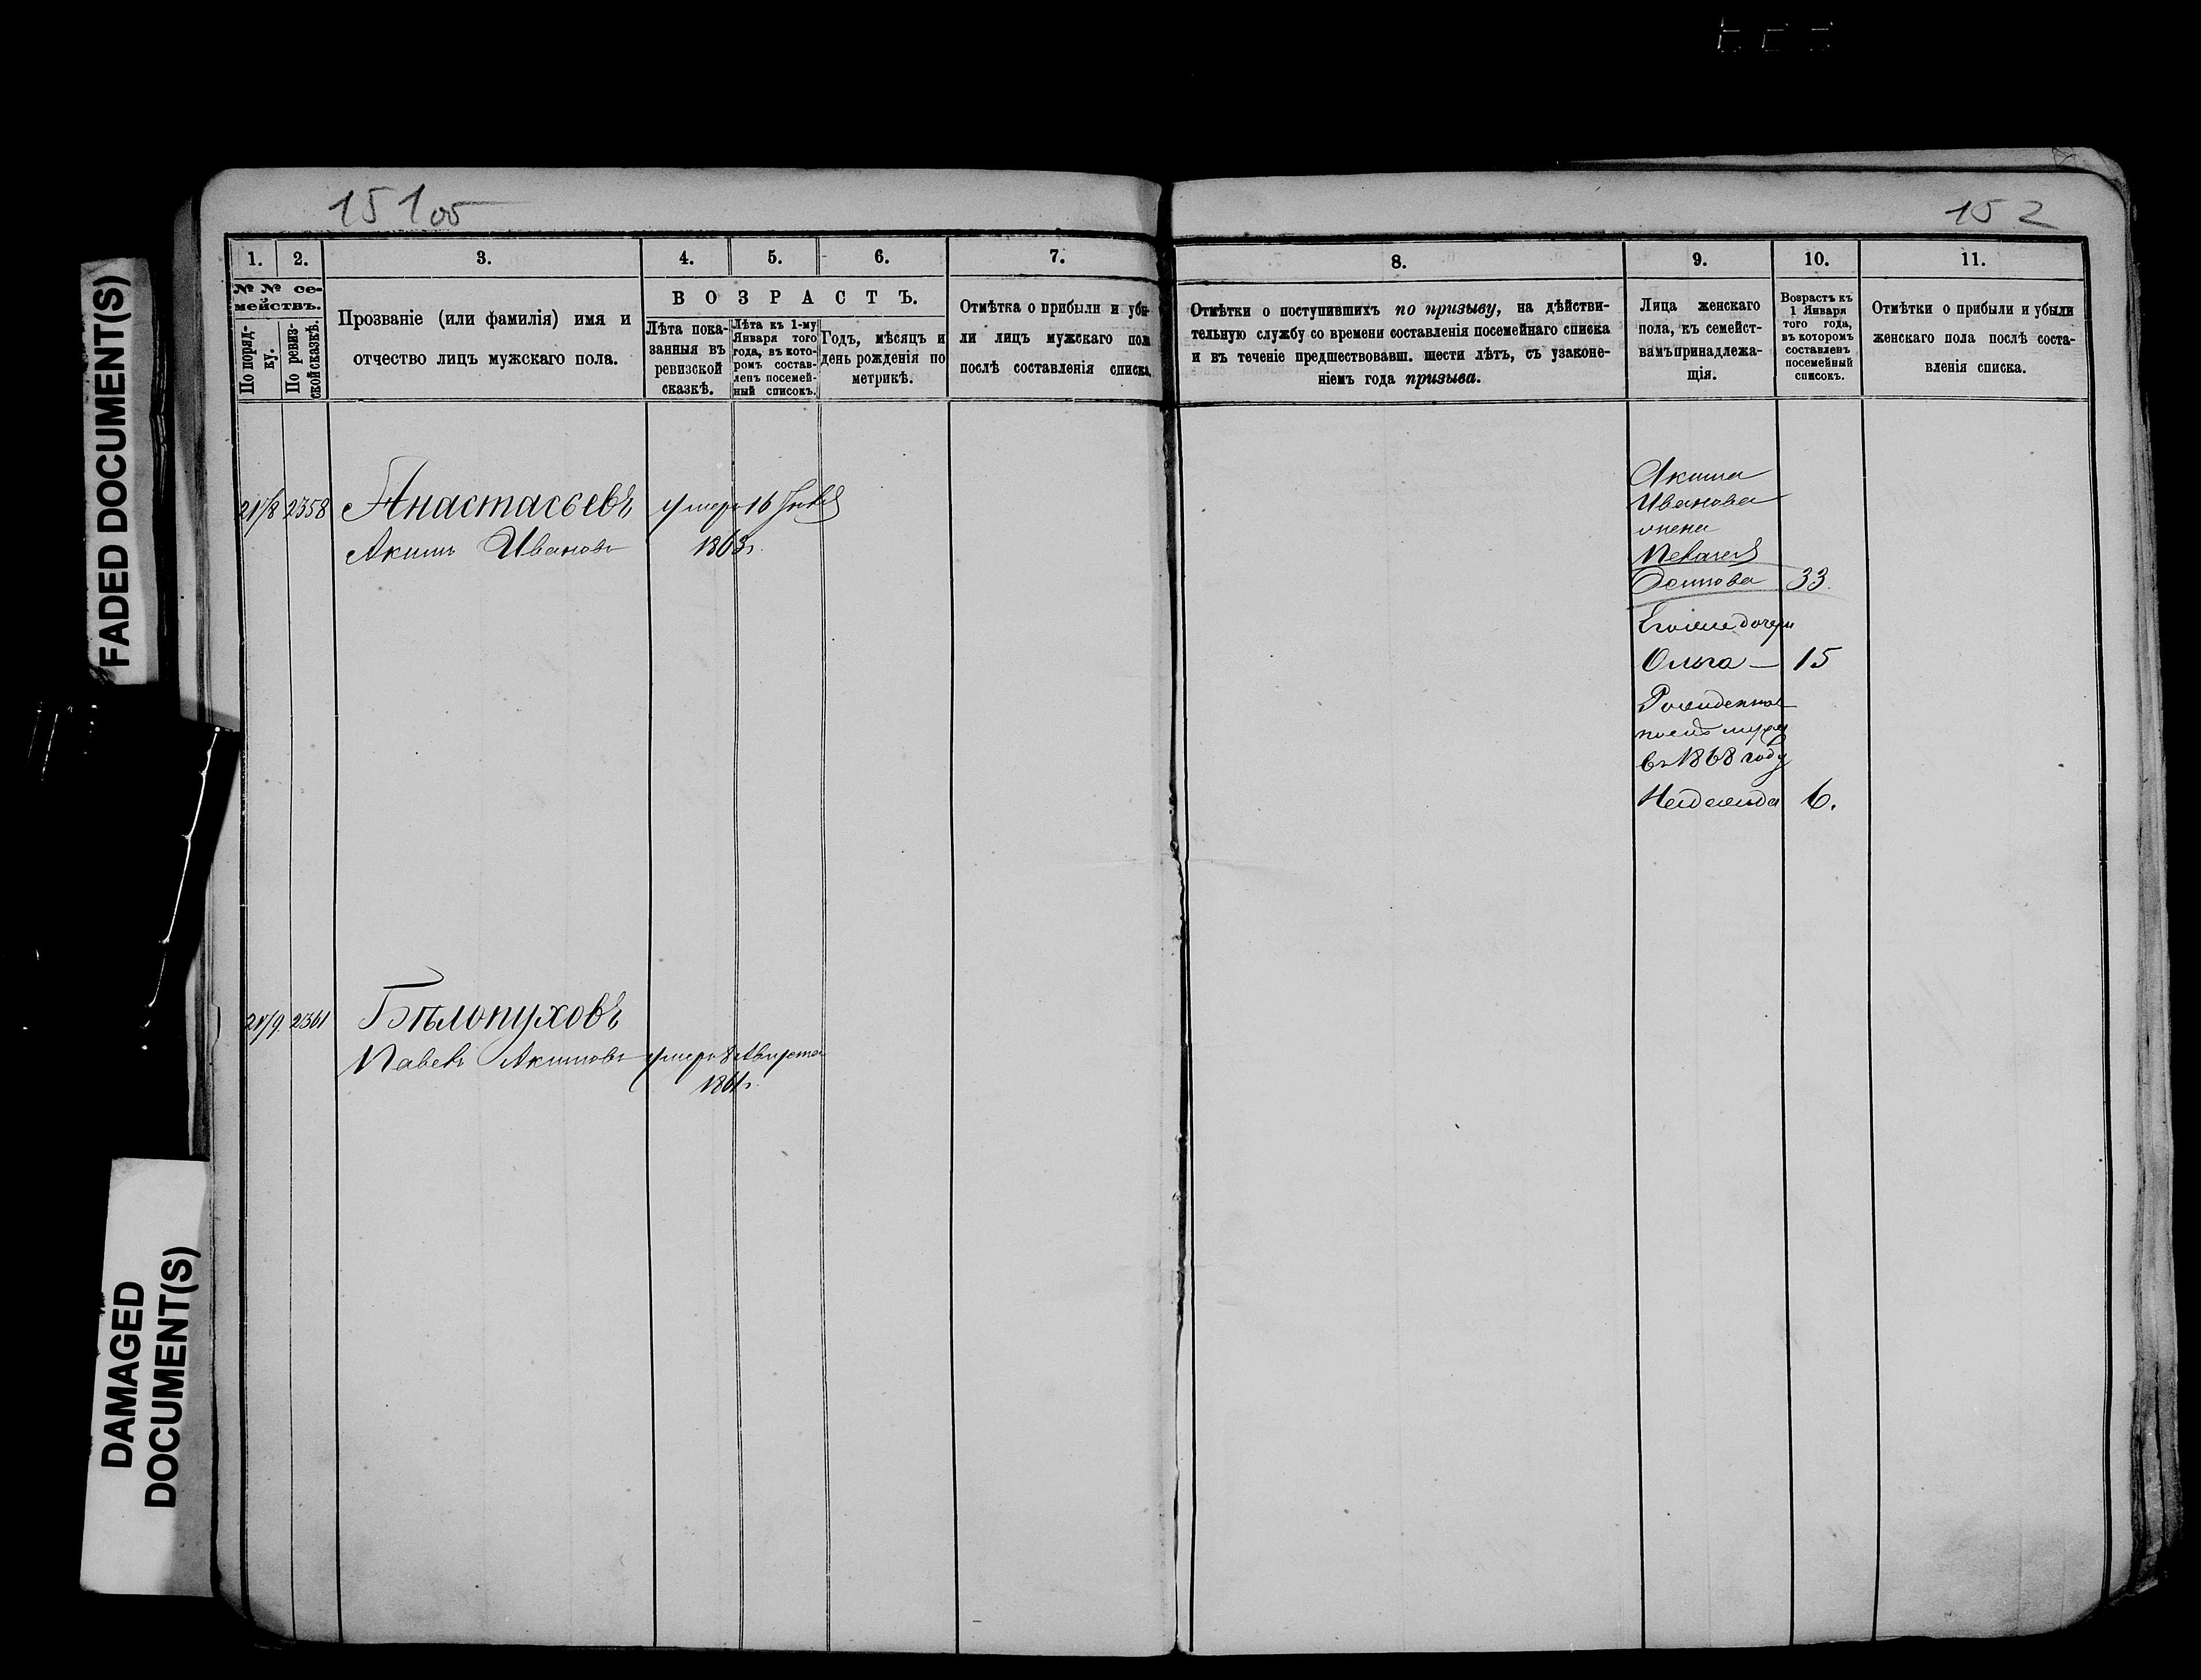 151 об
152
FADED DOCUMENT(S)
DAMAGED
DOCUMENT(S)
1.
2.
3.
4.
5.
6.
7.
№ № се-
мействъ.
По поряд-
ку.
По ревиз-
ской сказкѣ.
Прозваніе (или фамилія) имя и
отчество лицъ мужскаго пола.
ВОЗРАСТЪ.
Лѣта пока-
занныя въ
ревизской
сказкѣ.
Лѣта къ 1-му
Января того
года, въ кото-
ромъ состав-
ленъ посемей-
ный списокъ.
Годъ, мѣсяцъ и
день рожденія по
метрикѣ.
Отмѣтка о прибыли и убы-
ли лицъ мужскаго пола
послѣ составленія списка.
8.
9.
10.
11.
Отмѣтки о поступившихъ по призыву, на дѣйстви-
тельную службу со времени составленія посемейнаго списка
и въ теченіе предшествовавш. шести лѣтъ, съ узаконе-
ніемъ года призыва.
Лица женскаго
пола, къ семейст-
вамъ принадлежа-
щія.
Возрастъ къ
1 Января
того года,
въ которомъ
составленъ
посемейный
списокъ.
Отмѣтки о прибыли и убыли
женскаго пола послѣ соста-
вленія списка.
2358 Анастасьевъ умеръ 16
Акимъ Ивановъ 1868г.
Акима
Иванова
жена
Осипова 33.
дочери
Ольга — 15
Рожденная
въ 1868 году
Надежда 6.
2361 Бѣлопуховъ
Павелъ Акимовъ умеръ 8 Августа
1861г.